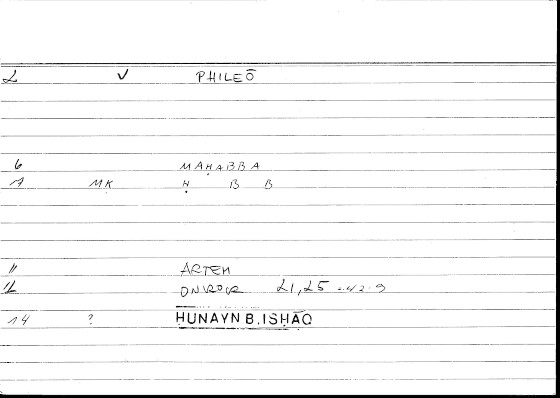 2 V PHILEŌ
6 MAḤABBA
7 MK Ḥ B B
11 ARTEM
12 ONIROR 21,25
14 ? ḤUNAYN B. ISḤĀQ